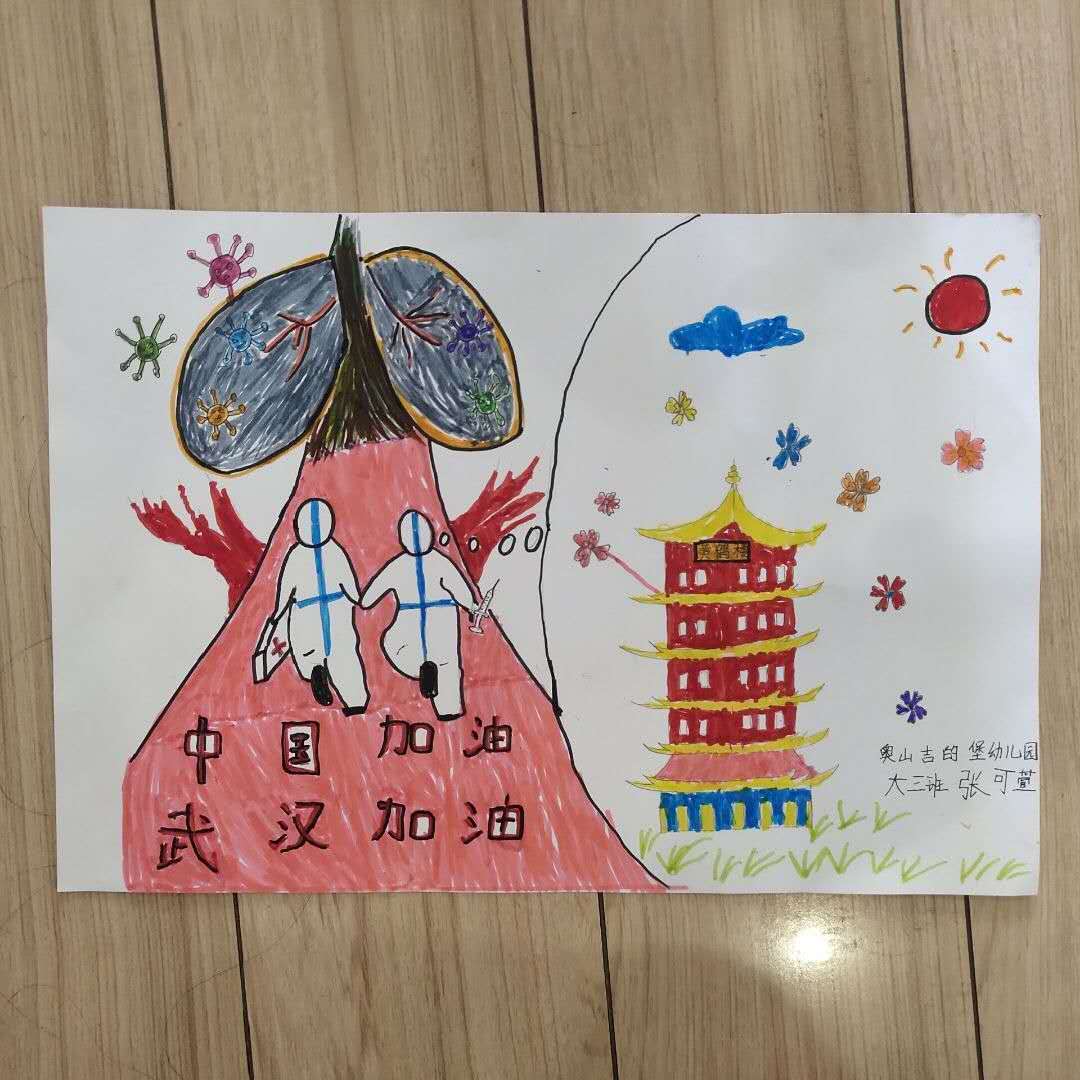 黄鹤楼
中国加油
武汉加油
奥山吉的堡幼儿园
大三班 张可萱